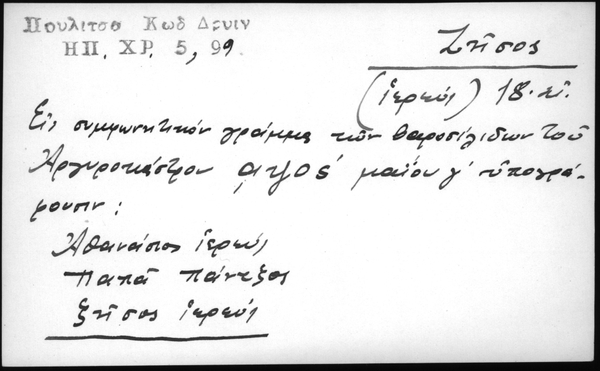 Πουλιτσα Κωδ Δρυιν
ΗΠ. ΧΡ. 5, 99.
Ζῆσος
(ἱερεύς) 18. αἰ.
Εἰς συμφωνητικόν γράμμα τῶν θαροσιλιδων τοῦ
Ἀργυροκάστρου μαΐου γ' ὑπογρά-
φουσιν:
Ἀθανάσιος ἱερεύς
Παπᾶ Πάντζος
Ζῆσος ἱερεύς